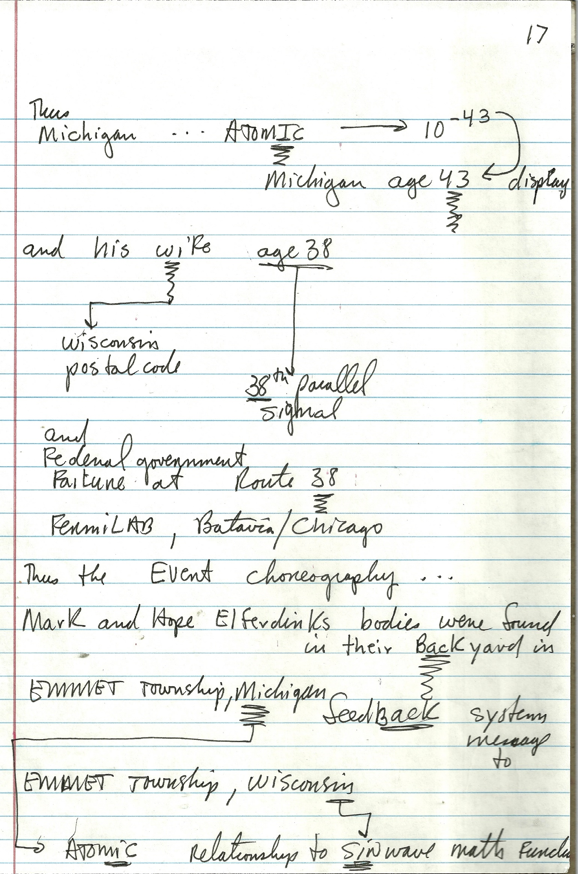 17
Thus
Michigan ... ATOMIC → 10 -43
Michigan age 43 display
and his wife age 38
wisconsin
postal code
38th parallel
signal
and
Federal government
Failure at Route 38
FermiLAB, Batavia/Chicago
Thus the Event choreography ...
Mark and Hope Elferdinks bodies were found
in their Backyard in
EMMET Township, Michigan
feedBACK system
message
to
EMMET Township, Wisconsin
Atomic Relationship to Sinwave math